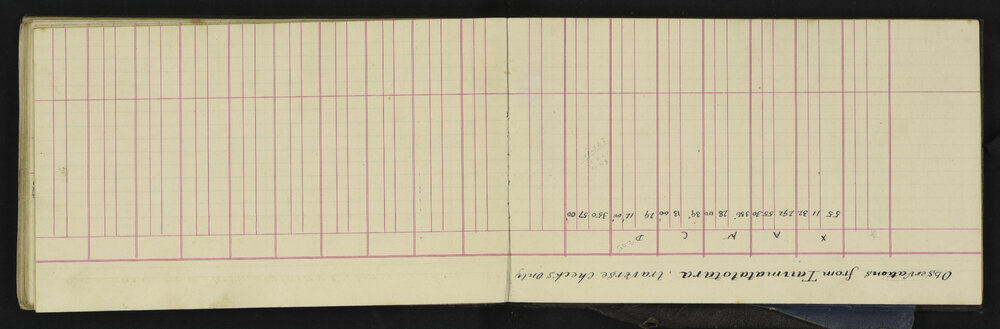 Observations from Taumatatotara, traverse checks only
X A N C D
55 11 32 292 55 30 356 28 00 39 13 00 29 11 00 350 57 00